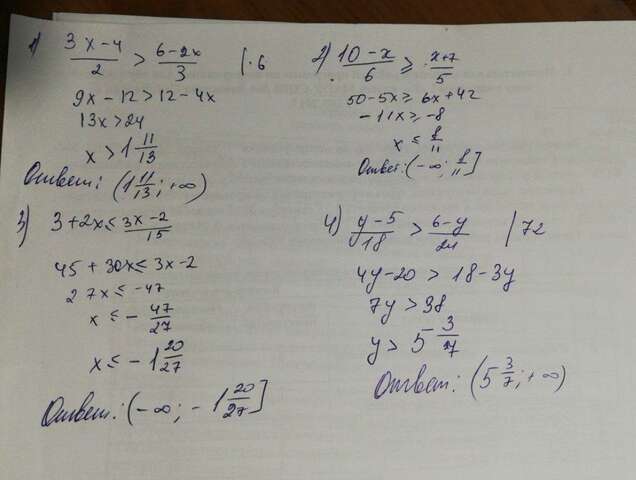 1) (3x-4)/2 > (6-2x)/3 |·6
9x - 12 > 12 - 4x
13x > 24
x > 1 11/13
Ответ: (1 11/13; +∞)
2) (10-x)/6 ≥ (x+7)/5
50-5x ≥ 6x+42
-11x ≥ -8
x ≤ 8/11
Ответ: (-∞; 8/11]
3) 3+2x ≤ (3x-2)/15
45 + 30x ≤ 3x-2
27x ≤ -47
x ≤ - 47/27
x ≤ - 1 20/27
Ответ: (-∞; - 1 20/27]
4) (y-5)/18 > (6-y)/24 | 72
4y-20 > 18-3y
7y > 38
y > 5 3/7
Ответ: (5 3/7; +∞)